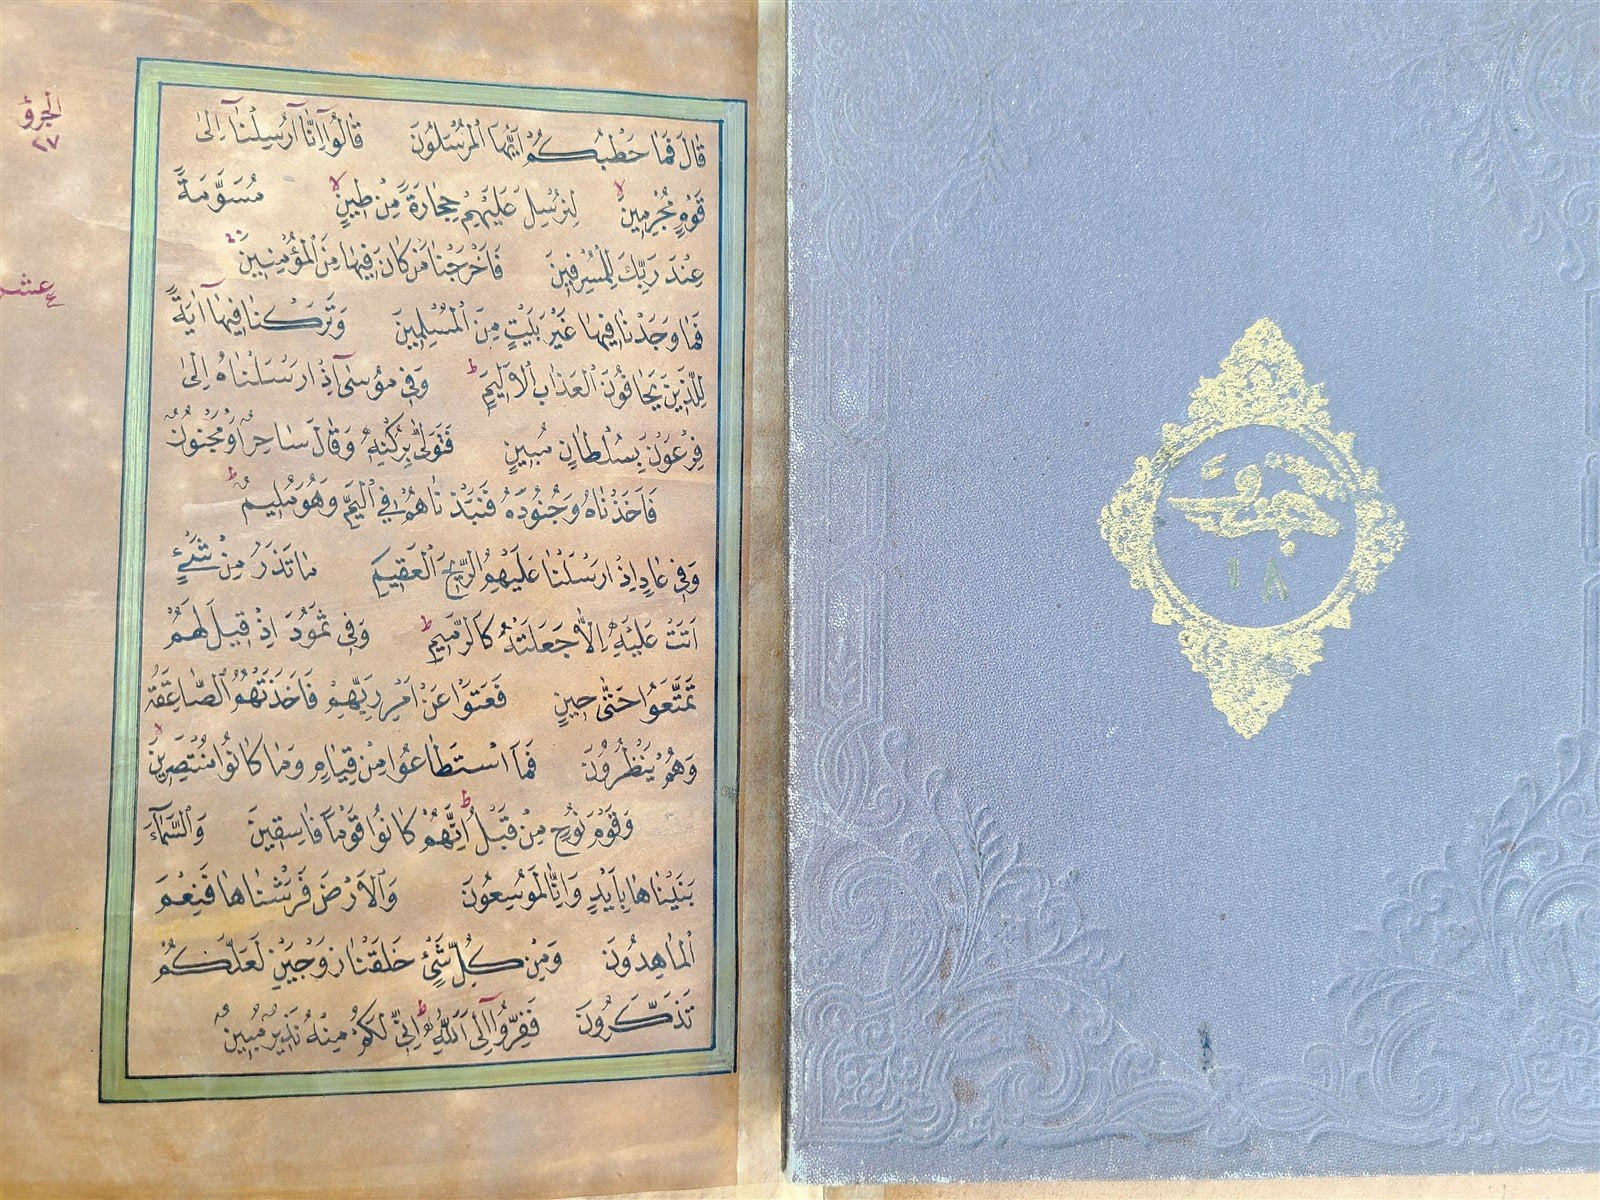 الجزؤ
٢٧
عشر
قَالَ فَمَا خَطْبُكُمْ اَيُّهَا الْمُرْسَلُونَ قَالُٓوا اِنَّٓا اُرْسِلْنَٓا اِلٰى
قَوْمٍ مُجْرِمِينَ لا لِنُرْسِلَ عَلَيْهِمْ حِجَارَةً مِنْ طِينٍ لا مُسَوَّمَةً
عِنْدَ رَبِّكَ لِلْمُسْرِفِينَ فَاَخْرَجْنَا مَنْ كَانَ فِيهَا مِنَ الْمُؤْمِنِينَ
فَمَا وَجَدْنَا فِيهَا غَيْرَ بَيْتٍ مِنَ الْمُسْلِمِينَ وَتَرَكْنَا فِيهَٓا اٰيَةً
لِلَّذِينَ يَخَافُونَ الْعَذَابَ الْاَلِيمَ ط وَفِي مُوسٰٓى اِذْ اَرْسَلْنَاهُ اِلٰى
فِرْعَوْنَ بِسُلْطَانٍ مُبِينٍ فَتَوَلّٰى بِرُكْنِهِ وَقَالَ سَاحِرٌ اَوْ مَجْنُونٌ
فَاَخَذْنَاهُ وَجُنُودَهُ فَنَبَذْنَاهُمْ فِي الْيَمِّ وَهُوَ مُلِيمٌ ط
وَفِي عَادٍ اِذْ اَرْسَلْنَا عَلَيْهِمُ الرِّيحَ الْعَقِيمَ مَا تَذَرُ مِنْ شَيْءٍ
اَتَتْ عَلَيْهِ اِلَّا جَعَلَتْهُ كَالرَّمِيمِ ط وَفِي ثَمُودَ اِذْ قِيلَ لَهُمْ
تَمَتَّعُوا حَتّٰى حِينٍ فَعَتَوْا عَنْ اَمْرِ رَبِّهِمْ فَاَخَذَتْهُمُ الصَّاعِقَةُ
وَهُمْ يَنْظُرُونَ فَمَا اسْتَطَاعُوا مِنْ قِيَامٍ وَمَا كَانُوا مُنْتَصِرِينَ لا
وَقَوْمَ نُوحٍ مِنْ قَبْلُ ط اِنَّهُمْ كَانُوا قَوْمًا فَاسِقِينَ وَالسَّمَٓاءَ
بَنَيْنَاهَا بِاَيْدٍ وَاِنَّا لَمُوسِعُونَ وَالْاَرْضَ فَرَشْنَاهَا فَنِعْمَ
الْمَاهِدُونَ وَمِنْ كُلِّ شَيْءٍ خَلَقْنَا زَوْجَيْنِ لَعَلَّكُمْ
تَذَكَّرُونَ فَفِرُّٓوا اِلَى اللّٰهِ ط اِنِّي لَكُمْ مِنْهُ نَذِيرٌ مُبِينٌ
١٨